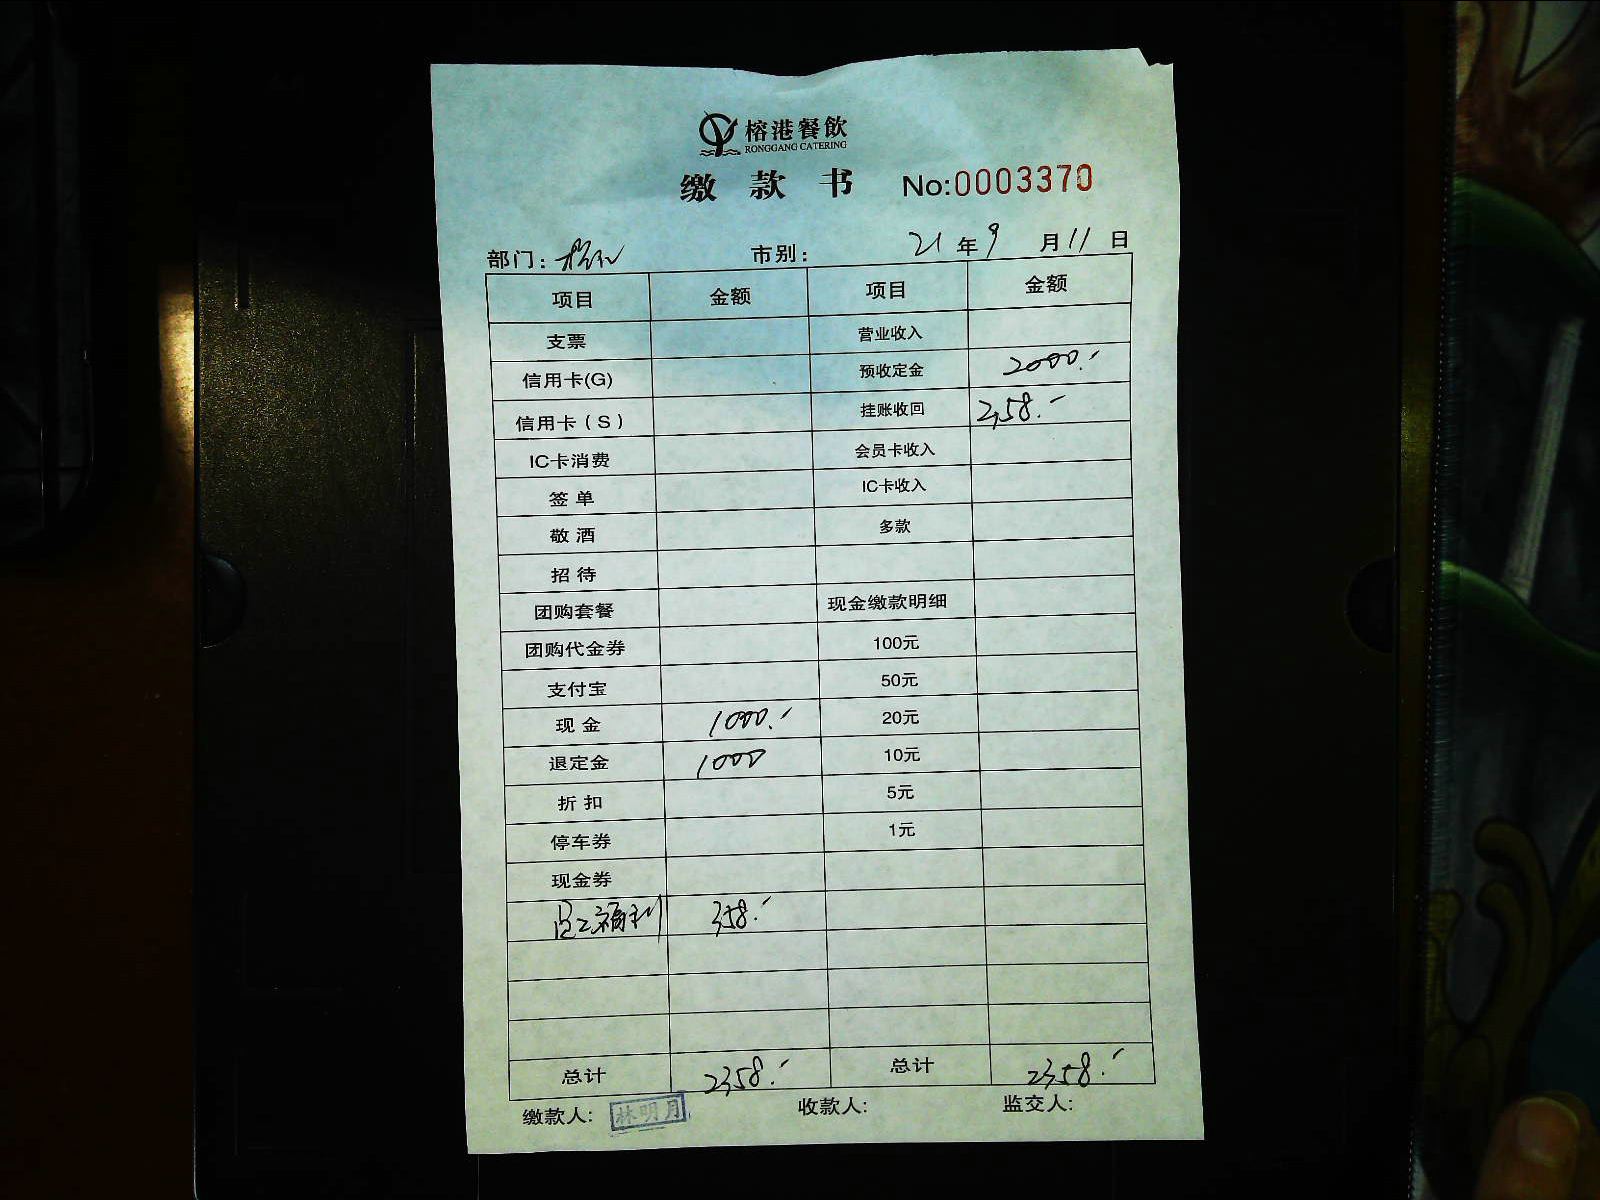 榕港餐飲
RONGGANG CATERING
缴款书 No:0003370
部门: 市别: 21年9月11日
项目 金额 项目 金额
支票 营业收入
信用卡(G) 预收定金 2000.-
信用卡(S) 挂账收回 358.-
IC卡消费 会员卡收入
签单 IC卡收入
敬酒 多款
招待
团购套餐 现金缴款明细
团购代金券 100元
支付宝 50元
现金 1000.- 20元
退定金 1000 10元
折扣 5元
停车券 1元
现金券
员工福利 358.-
总计 2358.- 总计 2358.-
缴款人: 林明月 收款人: 监交人: